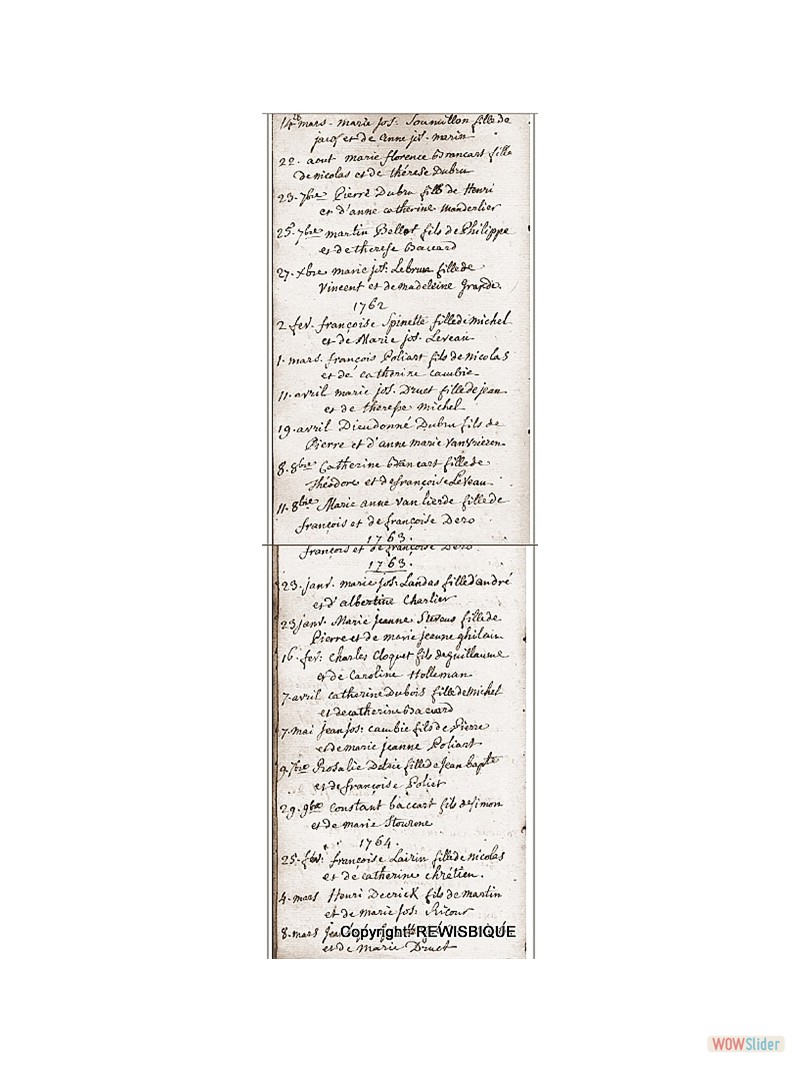 14 mars. marie jos: fille de
jacq et de anne jos. marin
22. aout marie florence Brancart fille
de nicolas et de thérèse Dubru
23. 7bre Pierre Dubru fils de Henri
et d'anne catherine Wanderlier
25. 7bre martin Bellot fils de Philippe
et de therese Baccard
27. xbre marie jos: Lebrun fille de
Vincent et de madeleine Grande.
1762
2 fev. françoise Spinette fille de michel
et de Marie jos. Leveau
1. mars. françois Poliart fils de nicolas
et de catherine cambie
11. avril marie jos. Druet fille de jean
et de therese michel
19. avril Dieudonné Dubru fils de
Pierre et d'anne marie Vanvriezen
8. 8bre Catherine Brancart fille de
théodore et de françoise Leveau
11. 8bre Marie anne van lierde fille de
françois et de françoise Dero
1763.
françois et de françoise Dero.
1763.
23. janv. marie jos: Landas fille d'andré
et d'albertine Charlier
23 janv. Marie jeanne fille de
Pierre et de marie jeanne ghilain
16. fev: Charles Cloquet fils de guillaume
et de Caroline Holleman
7. avril catherine Dubois fille de michel
et de catherine Baccard
7. mai jean jos: cambie fils de Pierre
et de marie jeanne Poliart
9. 7bre Rosalie fille de jean bapte
et de françoise Poliet
29. 9bre constant baccart fils de simon
et de marie
1764.
25. françoise Lairin fille de nicolas
et de catherine chrétien.
4. mars Henri Decrick fils de martin
et de marie jos: Ricour
8. mars
Copyright: REWISBIQUE
et de Marie Druet
WOWSlider